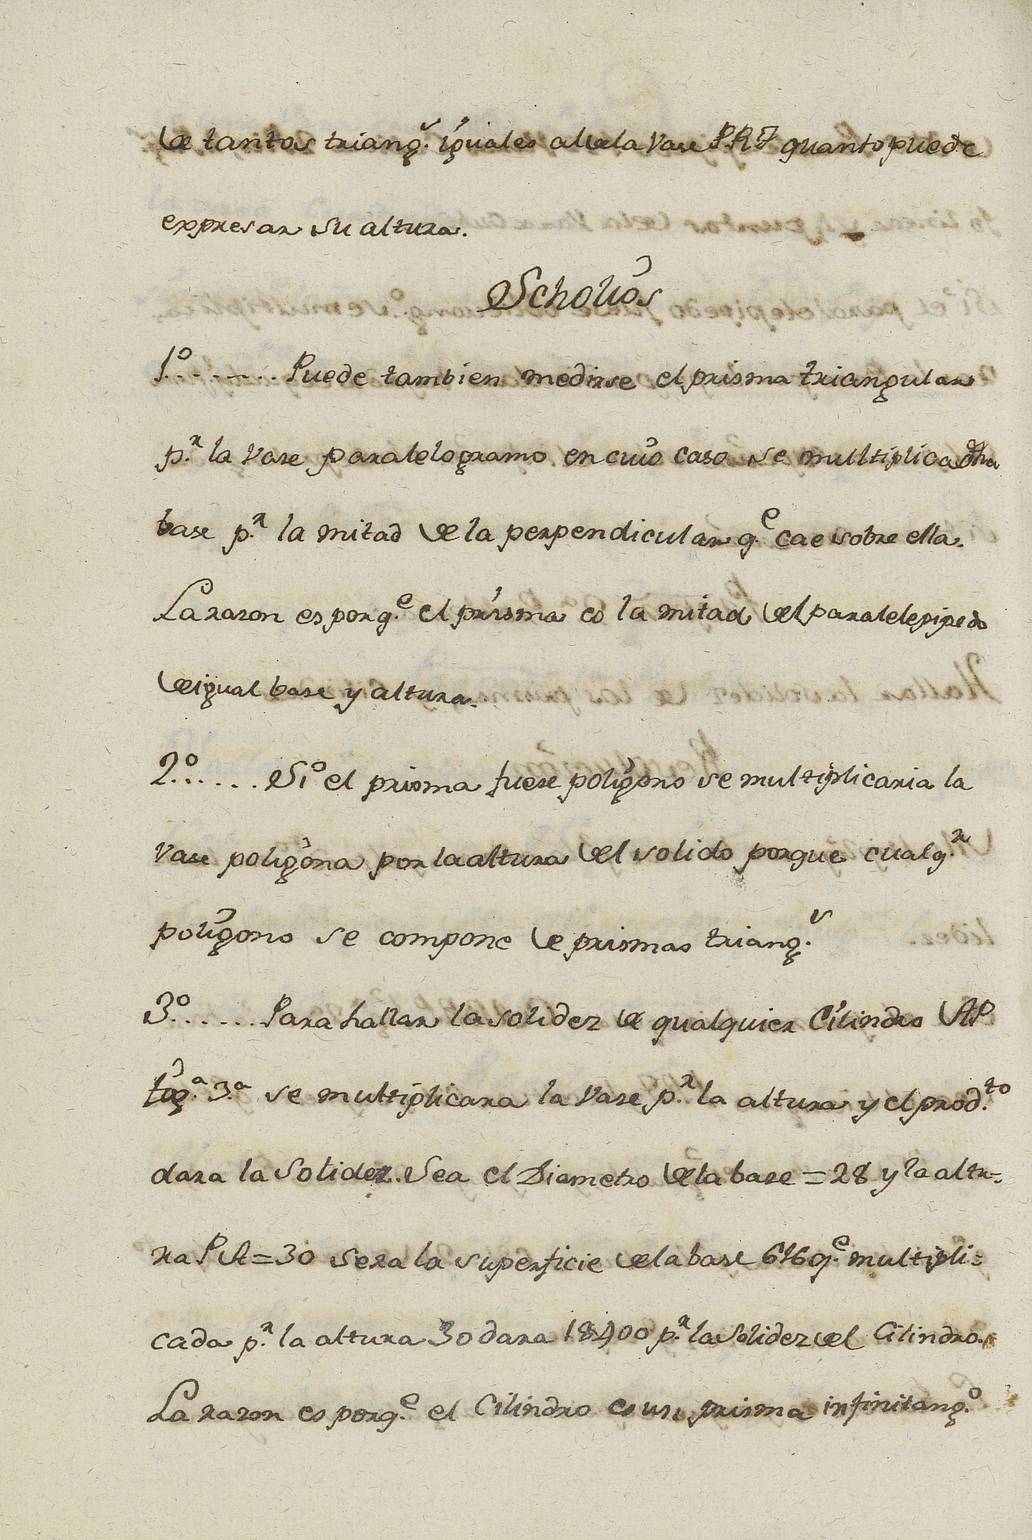 de tantos triang.s iguales al de la Vase PRT quanto puede
expresar su altura.
Scholiós
1º........ Puede tambien medirse el prisma triangular
p.r la Vase paralelogramo en cuio caso se multiplica dha
base p.r la mitad de la perpendicular q.e cae sobre ella.
La razon es porq.e el prisma es la mitad del paralelepipedo
de igual base y altura.
2º..... Si el prisma fuese poligono se multiplicaria la
Vase poligona por la altura del solido porque cualq.r
poligono se compone de prismas triang.s
3º...... Para hallar la solidez de qualquier Cilindro AP
fig.a 3.a se multiplicara la Vase p.r la altura y el prod.to
dara la Solidez. Sea el Diametro de la base = 28 y la altu-
ra PA = 30 sera la superficie de la base 616 q.e multipli=
cada p.r la altura 30 dara 18400 p.r la solidez del Cilindro.
La razon es porq.e el Cilindro es un prisma infinitang.o